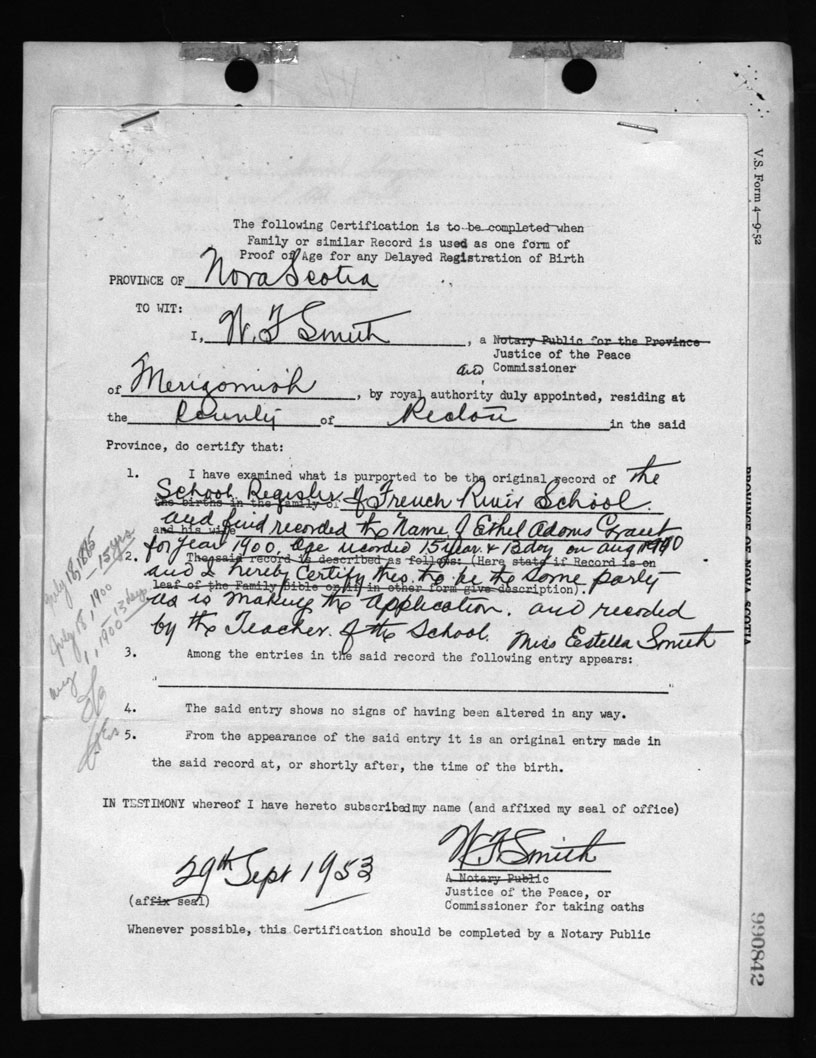 The following Certification is to be completed when
Family or similar Record is used as one form of
Proof of Age for any Delayed Registration of Birth
PROVINCE OF Nova Scotia
TO WIT:
I, W. F Smith, a Notary Public for the Province
Justice of the Peace
and Commissioner
of Merigomish, by royal authority duly appointed, residing at
the County of Pictou in the said
Province, do certify that:
1. I have examined what is purported to be the original record of the
School Register of French River School.
the births in the family of
and find recorded the Name of Ethel Adams Grant
and his wife
for year 1900. Age recorded 15 year & 13 day on Aug 1 1900
2. The said record is described as follows: (Here state if Record is on
and I hereby Certify this to be the Same party
leaf of the Family Bible or if in other form give description).
as is making the Application. and recorded
by the Teacher of the School. Miss Estella Smith
3. Among the entries in the said record the following entry appears:
" "
4. The said entry shows no signs of having been altered in any way.
5. From the appearance of the said entry it is an original entry made in
the said record at, or shortly after, the time of the birth.
IN TESTIMONY whereof I have hereto subscribed my name (and affixed my seal of office)
W F Smith
29th Sept 1953
A Notary Public
(affix seal)
Justice of the Peace, or
Commissioner for taking oaths
Whenever possible, this Certification should be completed by a Notary Public
July 18, 1885
July 18, 1900 - 15 yrs
Aug 1, 1900 - 13 days
V.S. Form 4—9-52
PROVINCE OF NOVA SCOTIA
990842